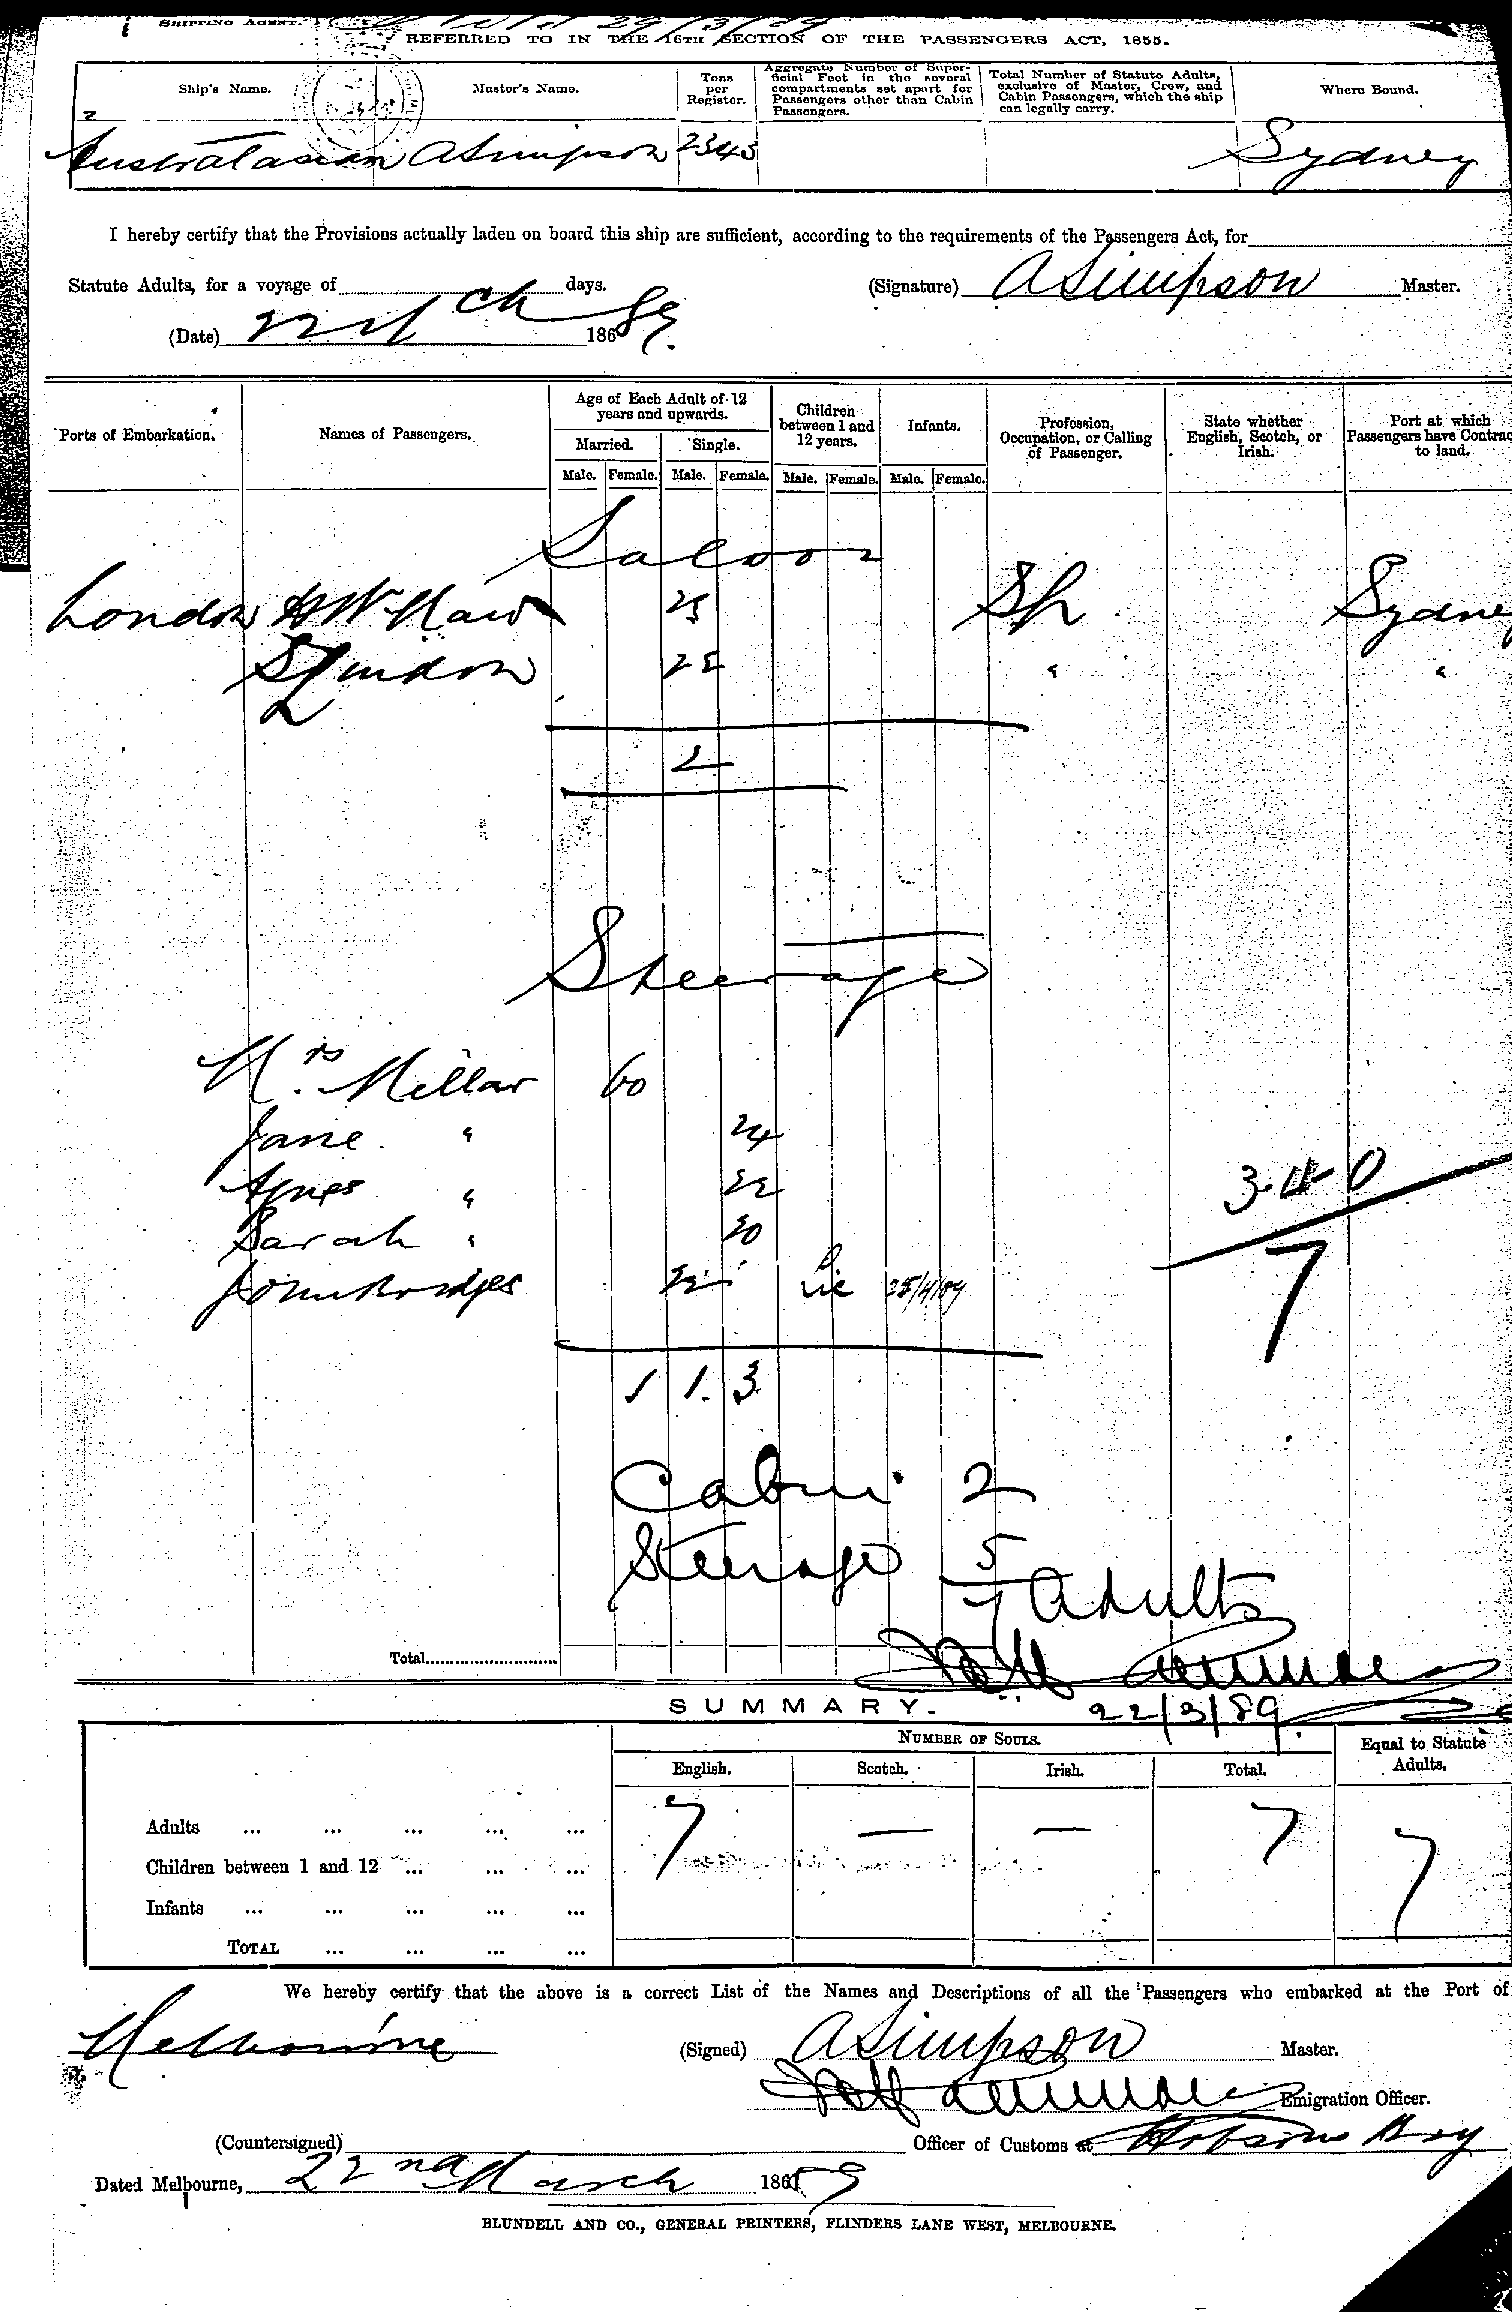 SHIPPING AGENT. 29/3/89
REFERRED TO IN THE 16TH SECTION OF THE PASSENGERS ACT, 1855.
Ship's Name. Master's Name. Tons per Register. Aggregate Number of Superficial Feet in the several compartments set apart for Passengers other than Cabin Passengers. Total Number of Statute Adults, exclusive of Master, Crew, and Cabin Passengers, which the ship can legally carry. Where Bound.
Australasian A Simpson 2343 Sydney
I hereby certify that the Provisions actually laden on board this ship are sufficient, according to the requirements of the Passengers Act, for
Statute Adults, for a voyage of days. (Signature) A Simpson Master.
(Date) 22 Mch 186 89.
Ports of Embarkation. Names of Passengers. Age of Each Adult of 12 years and upwards. Children between 1 and 12 years. Infants. Profession, Occupation, or Calling of Passenger. State whether English, Scotch, or Irish. Port at which Passengers have Contrac to land.
Married. Single.
Male. Female. Male. Female. Male. Female. Male. Female.
Saloon
London 25 Sydney
"
2
Steerage
Mrs. Millar 60
Jane " 24
Agnes " 22
Sarah " 20
John Bridges 22
3-4-0
7
1 1. 3
Cabin 2
Steerage 5
7 Adults
Total
SUMMARY. 22/3/89.
NUMBER OF SOULS. Equal to Statute Adults.
English. Scotch. Irish. Total.
Adults ... ... ... ... ... 7 — — 7 7
Children between 1 and 12 ... ... ...
Infants ... ... ... ... ...
TOTAL ... ... ... ...
We hereby certify that the above is a correct List of the Names and Descriptions of all the Passengers who embarked at the Port of
Melbourne (Signed) A Simpson Master.
Emigration Officer.
(Countersigned) Officer of Customs at Hobsons Bay
Dated Melbourne, 22nd March 1889
BLUNDELL AND CO., GENERAL PRINTERS, FLINDERS LANE WEST, MELBOURNE.